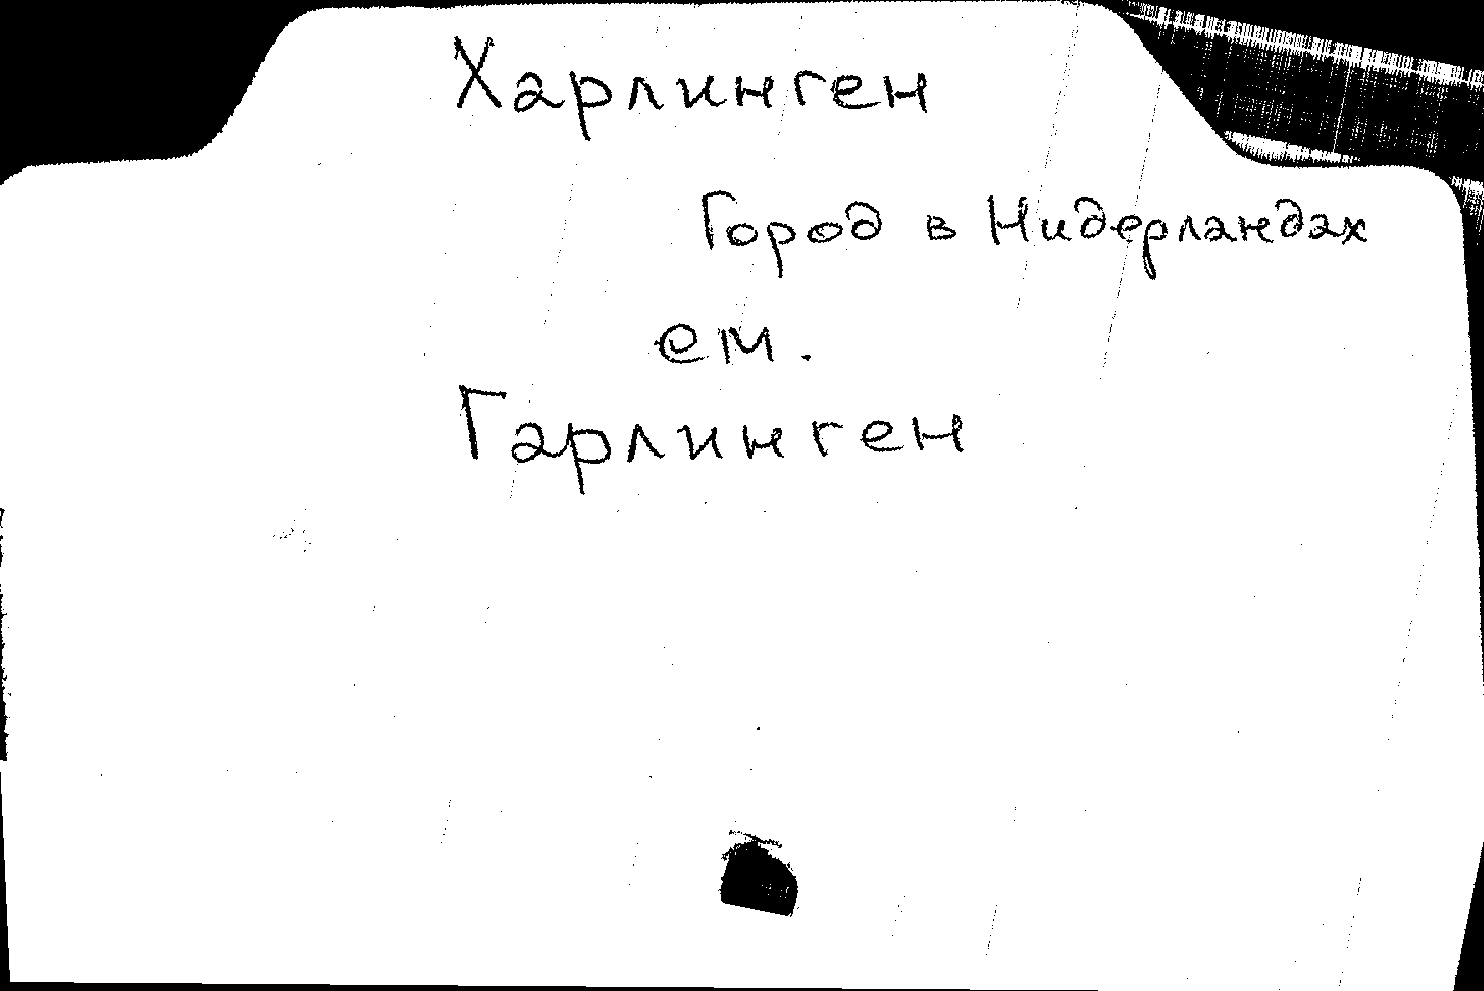 Харлинген
Город в Нидерландах
ем.
Гарлинген